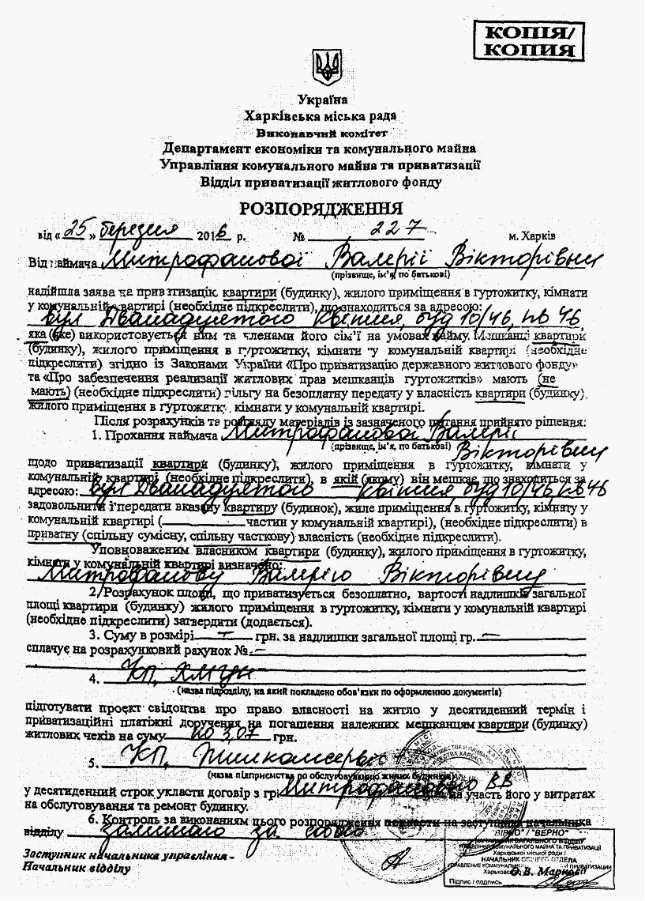 КОПІЯ/
КОПИЯ
Україна
Харківська міська рада
Виконавчий комітет
Департамент економіки та комунального майна
Управління комунального майна та приватизації
Відділ приватизації житлового фонду
РОЗПОРЯДЖЕННЯ
від « 25 » березня 2016 р. № 227 м. Харків
Від наймача Митрофанової Валерії Вікторівни
(прізвище, ім'я, по батькові)
надійшла заява на приватизацію квартири (будинку), жилого приміщення в гуртожитку, кімнати
у комунальній квартирі (необхідне підкреслити), що знаходиться за адресою:
вул Дванадцятого Квітня, буд 10/46, кв 46,
яка (яке) використовується ним та членами його сім'ї на умовах найму. Мешканці квартири
(будинку), жилого приміщення в гуртожитку, кімнати у комунальній квартирі (необхідне
підкреслити) згідно із Законами України «Про приватизацію державного житлового фонду»
та «Про забезпечення реалізації житлових прав мешканців гуртожитків» мають (не
мають) (необхідне підкреслити) пільгу на безоплатну передачу у власність квартири (будинку),
жилого приміщення в гуртожитку, кімнати у комунальній квартирі.
Після розрахунків та розгляду матеріалів із зазначеного питання прийнято рішення:
1. Прохання наймача Митрофанової Валерії
(прізвище, ім'я, по батькові) Вікторівни
щодо приватизації квартири (будинку), жилого приміщення в гуртожитку, кімнати у
комунальній квартирі (необхідне підкреслити), в якій (якому) він мешкає, що знаходиться за
адресою: вул Дванадцятого Квітня буд 10/46, кв 46
задовольнити і передати вказану квартиру (будинок), жиле приміщення в гуртожитку, кімнату у
комунальній квартирі ( частин у комунальній квартирі), (необхідне підкреслити) в
приватну (спільну сумісну, спільну часткову) власність (необхідне підкреслити).
Уповноваженим власником квартири (будинку), жилого приміщення в гуртожитку,
кімнати у комунальній квартирі визначено:
Митрофанову Валерію Вікторівну
2. Розрахунок площі, що приватизується безоплатно, вартості надлишків загальної
площі квартири (будинку) жилого приміщення в гуртожитку, кімнати у комунальній квартирі
(необхідне підкреслити) затвердити (додається).
3. Суму в розмірі — грн. за надлишки загальної площі гр. —
сплачує на розрахунковий рахунок № —
4. КП
(назва підрозділу, на який покладено обов'язки по оформленню документів)
підготувати проєкт свідоцтва про право власності на житло у десятиденний термін і
приватизаційні платіжні доручення на погашення належних мешканцям квартири (будинку)
житлових чеків на суму по 3,07 грн.
5. КП, Жилкомсервіс
(назва підприємства по обслуговуванню жилих будинків)
у десятиденний строк укласти договір з гр. Митрофановою ВВ на участь його у витратах
на обслуговування та ремонт будинку.
6. Контроль за виконанням цього розпорядження покласти на заступника начальника
відділу залишаю за собою
Заступник начальника управління -
Начальник відділу
"ВІРНО" / "ВЕРНО"
НАЧАЛЬНИК ЗАГАЛЬНОГО ВІДДІЛУ
УПРАВЛІННЯ КОМУНАЛЬНОГО МАЙНА ТА ПРИВАТИЗАЦІЇ
Харківської міської ради /
НАЧАЛЬНИК ОБЩЕГО ОТДЕЛА
О. В. Маркова
Підпис / подпись